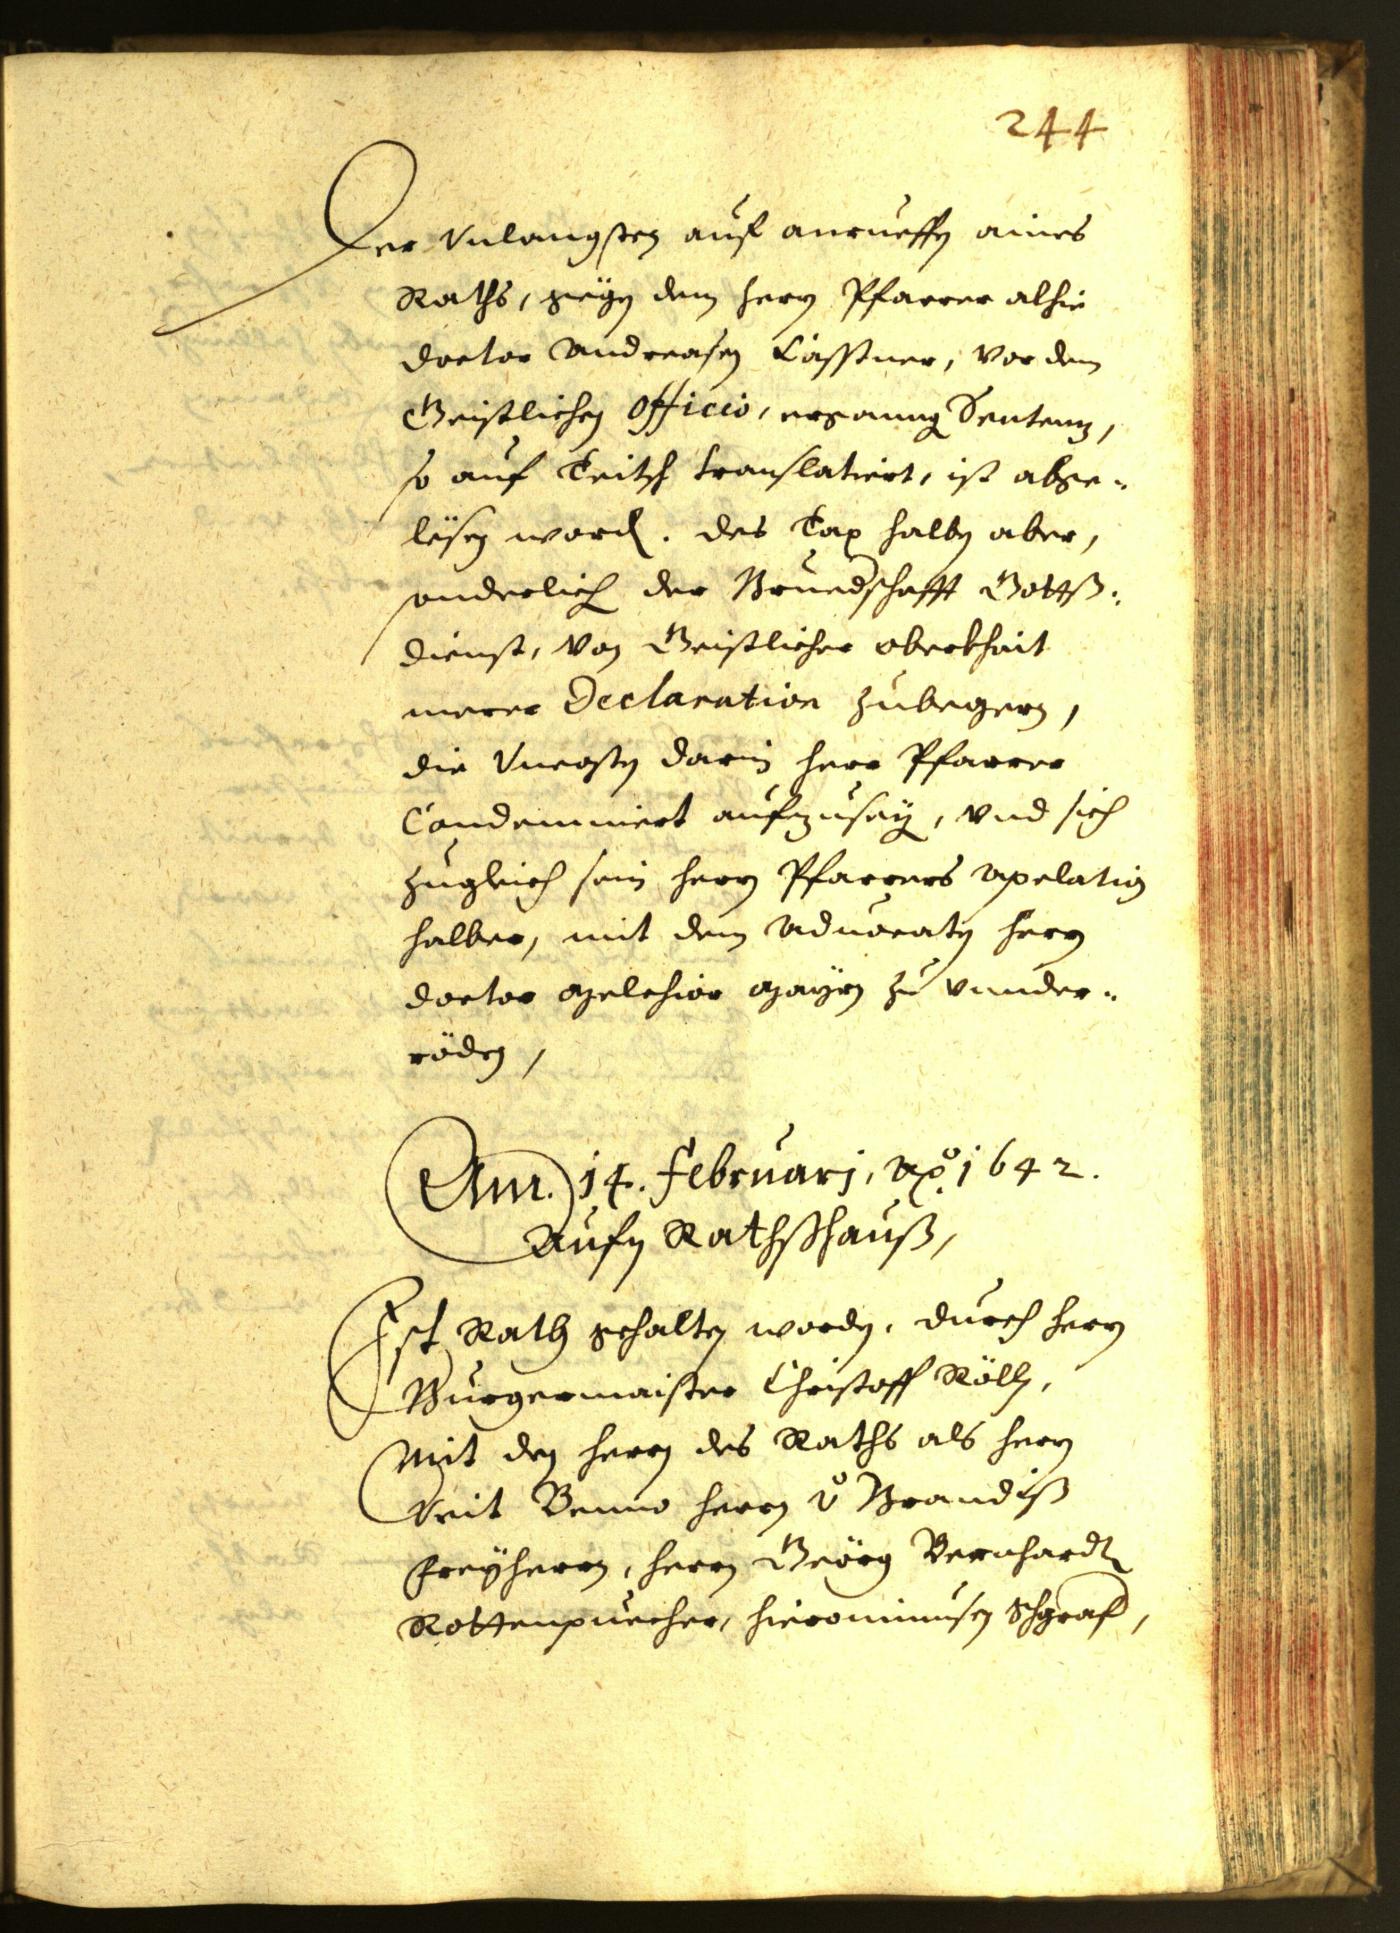 244
Der Vnlangsten auf anrueffen aines
Raths, gegen dem herrn Pfarrer alhie
doctor Andreasen Casstner, vor dem
Geistlichen Officio, ergangne Sentenz,
so auf Teitsch translatiert, ist abge-
lësen word. des Tax halben aber,
sonderlich der Bruedschafft Gottß-
dienst, von Geistlicher oberkhait
merer Declaration zubegern,
die Vncosten darin herr Pfarrer
Condemniert aufzusezen, vnd sich
zugleich sein herrn Pfarrers apelation
halber, mit dem aduocaten herrn
doctor Melchior Mayrn zu vnnder-
röden,
Am. 14. Februarj, Ao. 1642.
Aufn Rathßhauß,
Ist Rath gehalten worden, durch herrn
Burgermaister Christoff Röll,
Mit den herrn des Raths als herrn
Veit Benno herrn v Brandiß
Freyherrn, herrn Geörg Bernhardt
Rottenpuecher, Hieronimusen Schgraf,